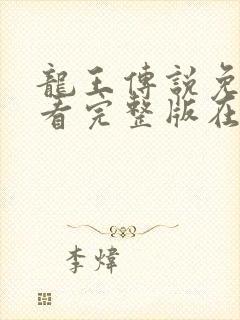 龍王傳説免
看完整版在
李煒